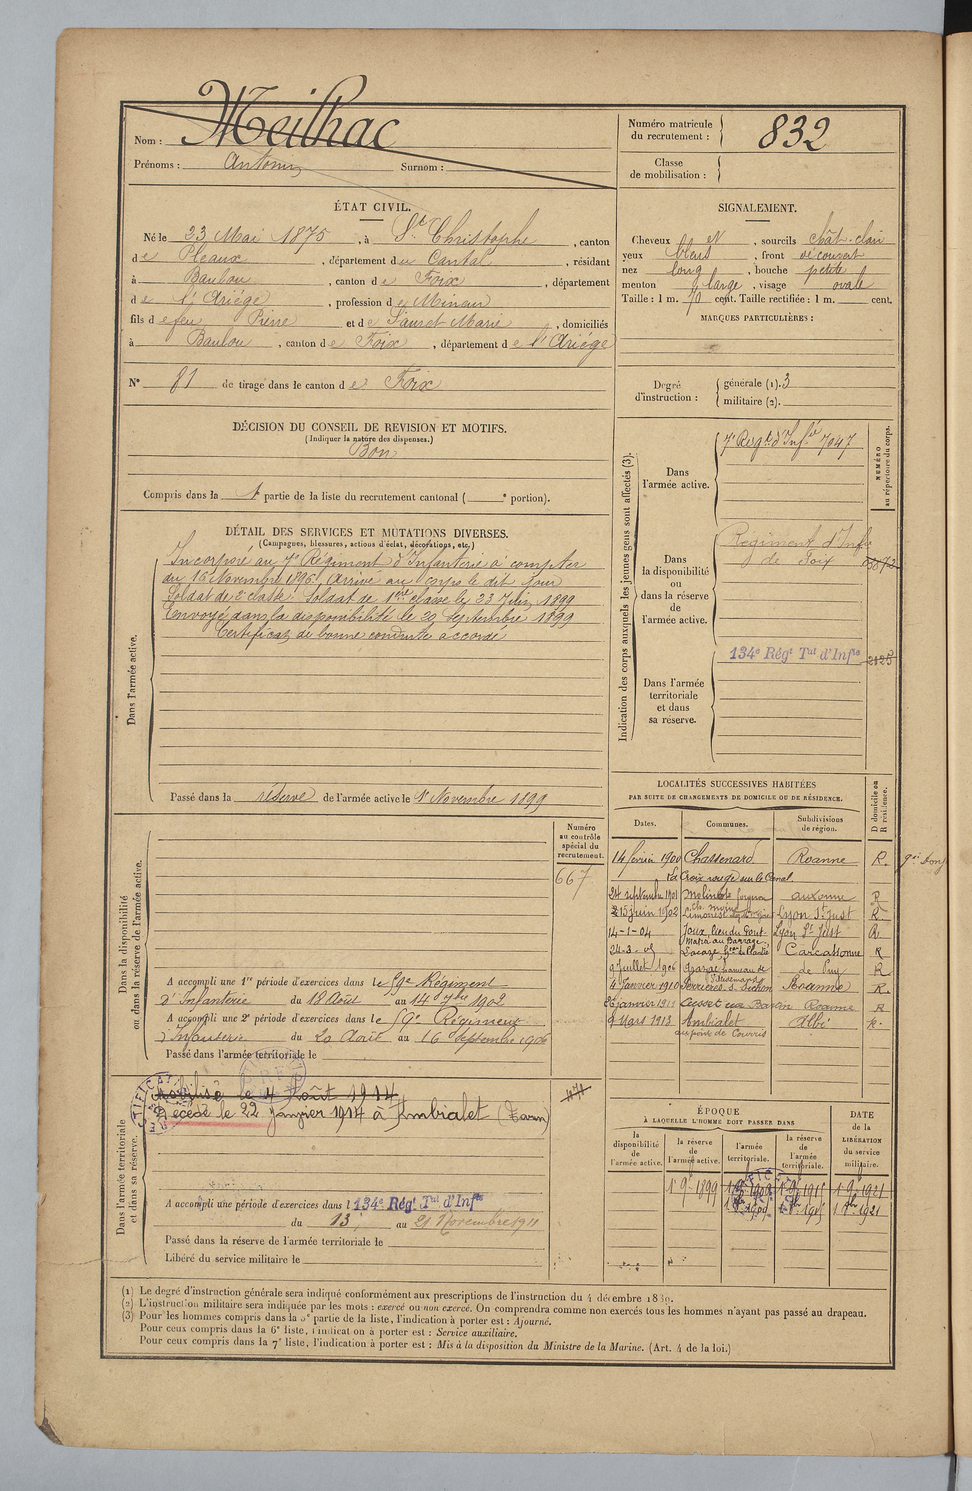 Nom : Meilhac
Prénoms : Antonin Surnom :
Numéro matricule du recrutement : 832
Classe de mobilisation :
ÉTAT CIVIL.
Né le 23 Mai 1875, à St Christophe, canton
de Pleaux, département du Cantal, résidant
à Baulou, canton de Foix, département
de l'Ariége, profession de Mineur
fils de feu Pierre et de Marie, domiciliés
à Baulou, canton de Foix, département de l'Ariége
N° 81 de tirage dans le canton de Foix
SIGNALEMENT.
Cheveux et, sourcils chât. clair
yeux bleus, front découvert
nez long, bouche petite
menton large, visage ovale
Taille : 1 m. 70 cent. Taille rectifiée : 1 m. cent.
MARQUES PARTICULIÈRES :
Degré d'instruction : générale (1). 3
militaire (2).
DÉCISION DU CONSEIL DE REVISION ET MOTIFS.
(Indiquer la nature des dispenses.)
Bon
Compris dans la 1e partie de la liste du recrutement cantonal ( e portion).
DÉTAIL DES SERVICES ET MUTATIONS DIVERSES.
(Campagnes, blessures, actions d'éclat, décorations, etc.)
Dans l'armée active.
Incorporé au 7e Régiment d'Infanterie à compter
du 16 Novembre 1896. Arrivé au corps le dit jour
Soldat de 2e classe. Soldat de 1ère classe le 23 Juin 1899
Envoyé dans la disponibilité le 20 Septembre 1899
Certificat de bonne conduite accordé
Passé dans la réserve de l'armée active le 1r Novembre 1899
Indication des corps auxquels les jeunes gens sont affectés (3).
NUMÉRO au répertoire du corps.
Dans l'armée active.
7e Régt d'Infie 7947
Dans la disponibilité ou dans la réserve de l'armée active.
Régiment d'Infie
de Foix
Dans l'armée territoriale et dans sa réserve.
134e Régt Tal d'Infie
LOCALITÉS SUCCESSIVES HABITÉES
PAR SUITE DE CHANGEMENTS DE DOMICILE OU DE RÉSIDENCE.
Dates. Communes. Subdivisions de région. D domicile ou R résidence.
14 février 1900 Chassenard Roanne R.
La Croix rouge sur le Canal
24 septembre 1901 Molinet auxonne R
15 juin 1902 Limonest Lyon St Just R.
14-1-04 Joux, lieu du Pont- Lyon St Just R
Matra au Barrage.
24-3- Lacaze Carcassonne R
9 juillet 1906 hameau de Le Puy R
4 Janvier 1910 Ferrières s. Sichon Roanne R.
26 janvier 1911 Cusset Roanne R
9 Mars 1913 Ambialet Albi R.
au pont de Courris
Dans la disponibilité ou dans la réserve de l'armée active.
Numéro au contrôle spécial du recrutement.
667
A accompli une 1re période d'exercices dans le 59e Régiment
d'Infanterie du 18 Août au 14 7bre 1902
A accompli une 2e période d'exercices dans le 59e Régiment
d'Infanterie du 20 Août au 16 Septembre 1906
Passé dans l'armée territoriale le
Dans l'armée territoriale et dans sa réserve.
Mobilisé le 4 Août 1914
Décédé le 22 Janvier 1914 à Ambialet (Tarn)
A accompli une période d'exercices dans l 134e Régt Tal d'Infie
du 13 au 21 Novembre 1911
Passé dans la réserve de l'armée territoriale le
Libéré du service militaire le
ÉPOQUE
À LAQUELLE L'HOMME DOIT PASSER DANS
la disponibilité de l'armée active.
la réserve de l'armée active.
l'armée territoriale.
la réserve de l'armée territoriale.
DATE de la LIBÉRATION du service militaire.
1 9 1899
1 9 1921
1 1921
(1) Le degré d'instruction générale sera indiqué conformément aux prescriptions de l'instruction du 4 décembre 1889.
(2) L'instruction militaire sera indiquée par les mots : exercé ou non exercé. On comprendra comme non exercés tous les hommes n'ayant pas passé au drapeau.
(3) Pour les hommes compris dans la 5e partie de la liste, l'indication à porter est : Ajourné.
Pour ceux compris dans la 6e liste, l'indication à porter est : Service auxiliaire.
Pour ceux compris dans la 7e liste, l'indication à porter est : Mis à la disposition du Ministre de la Marine. (Art. 4 de la loi.)